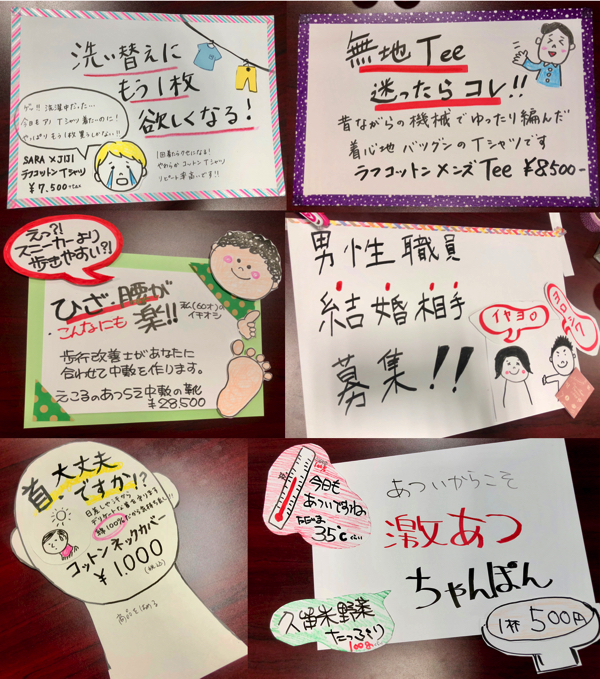 洗い替えに
もう1枚
欲しくなる!
ゲッ!! 洗濯中だった…
今日もアノTシャツ着たいのに!
やっぱりもう1枚買うしかない!!
SARA×JIJI
ラフコットンTシャツ
¥7.500+tax
1回着たらクセになる!
やわらかコットンTシャツ
リピート率高いです!!
無地Tee
迷ったらコレ!!
昔ながらの機械でゆったり編んだ
着心地バツグンのTシャツです
ラフコットンメンズTee ¥8500-
えっ?!
スニーカーより
歩きやすい?!
ひざ・腰が
こんなにも楽!!
私(60才)の
イチオシ
歩行改善士があなたに
合わせて中敷を作ります。
えこるのあつらえ中敷の靴
¥28,500
男性職員
結婚相手
募集!!
イヤヨ。
ヨロシク
首、大丈夫
ですか!?
日差しや汗から
デリケートな首を守ります
綿100%だから気持ち良い
コットンネックカバー
¥1,000
(税込)
商品をはめる
今日も
あついですね
ただいま
35℃くらい
あついからこそ
激あつ
ちゃんぽん
久留米野菜
たっぷり
100g
1杯 500円